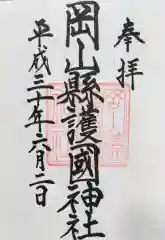 奉拝
岡山縣護國神社
平成三十年六月二日